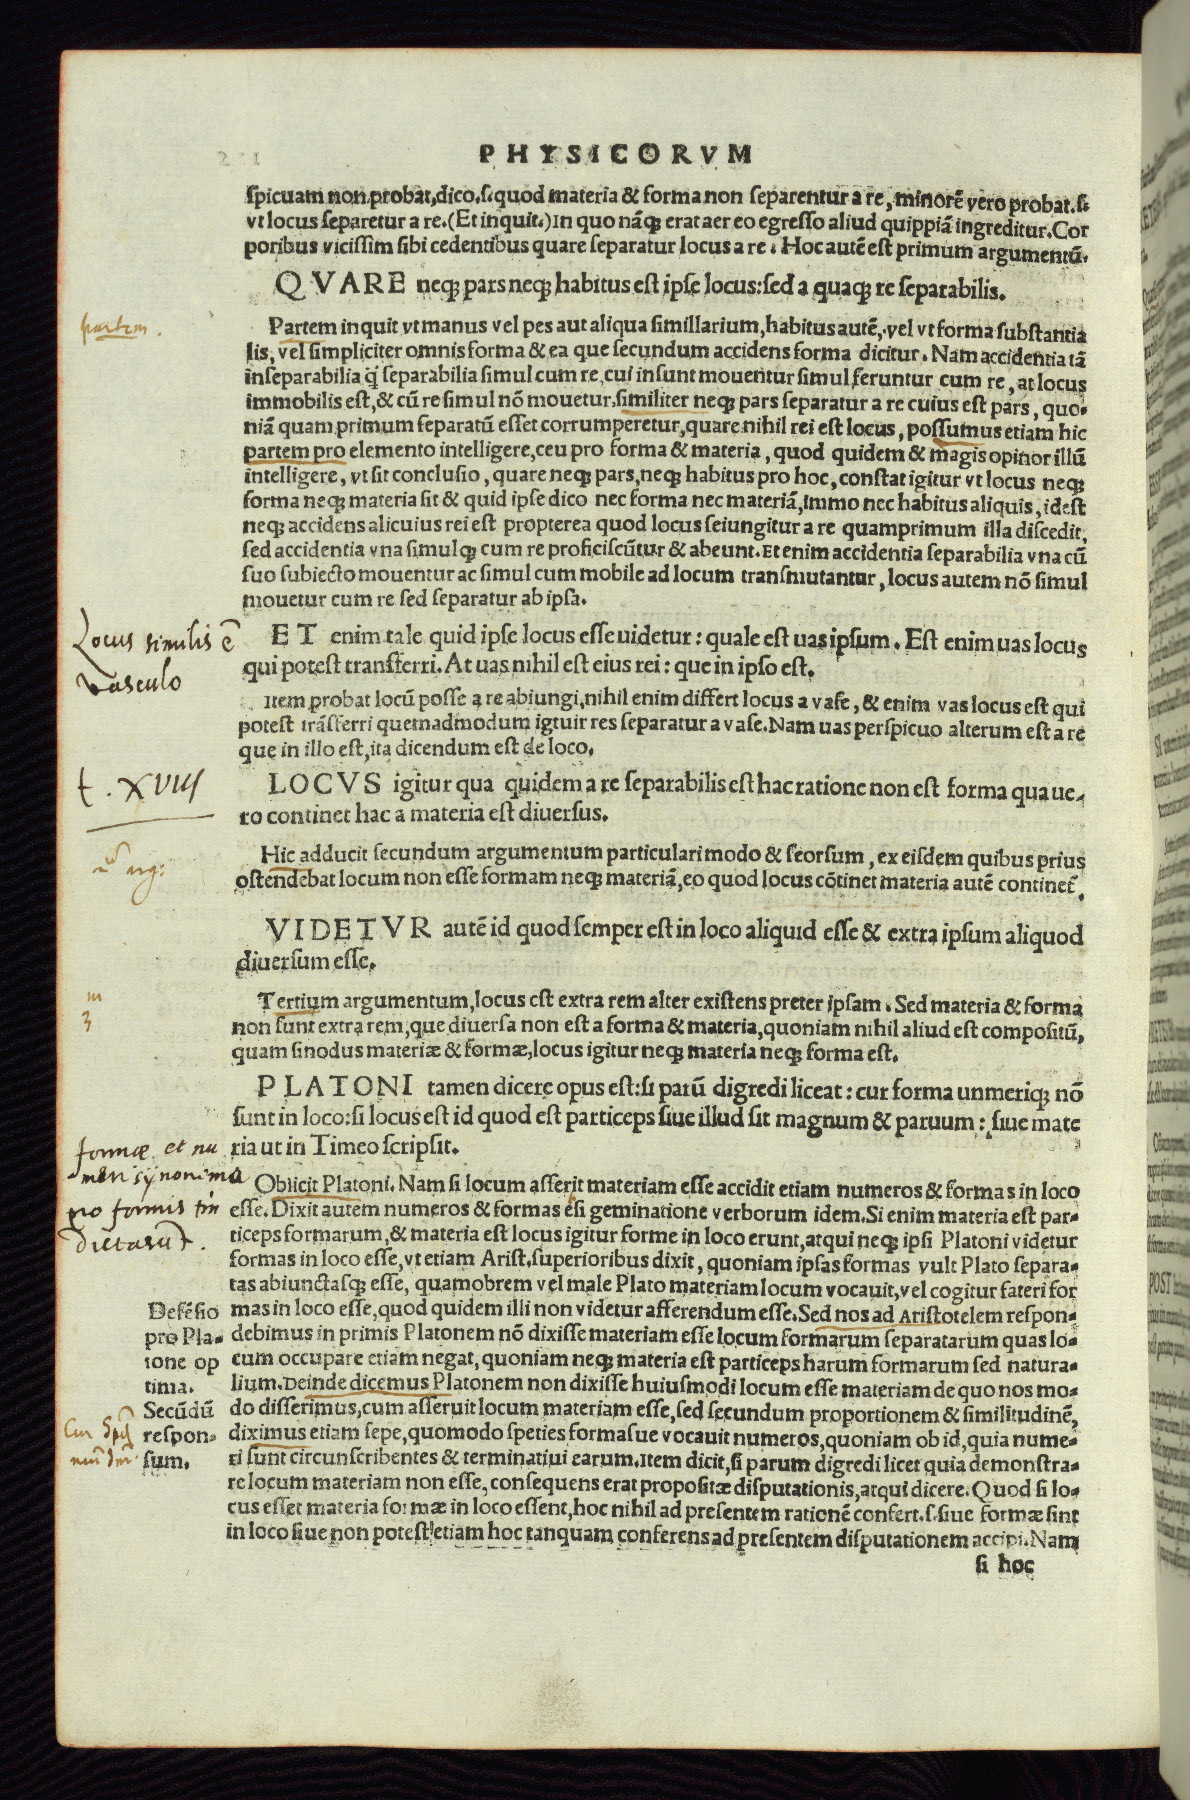 PHYSICORVM
spicuam non probat, dico. s. quod materia & forma non separentur a re, minorē vero probat. s.
vt locus separetur a re. (Et inquit.) in quo nāq; erat aer eo egresso aliud quippiā ingreditur. Cor
poribus vicissim sibi cedentibus quare separatur locus a re. Hoc autē est primum argumentū.
QVARE neq; pars neq; habitus est ipse locus: sed a quaq; re separabilis.
partem.
Partem inquit vt manus vel pes aut aliqua simillarium, habitus autē, vel vt forma substantia
lis, vel simpliciter omnis forma & ea que secundum accidens forma dicitur. Nam accidentia tā
inseparabilia q̄ separabilia simul cum re, cui insunt mouentur simul feruntur cum re, at locus
immobilis est, & cū re simul nō mouetur, similiter neq; pars separatur a re cuius est pars, quo-
niā quam primum separatū esset corrumperetur, quare nihil rei est locus, possumus etiam hic
partem pro elemento intelligere, ceu pro forma & materia, quod quidem & magis opinor illū
intelligere, vt sit conclusio, quare neq; pars, neq; habitus pro hoc, constat igitur vt locus neq;
forma neq; materia sit & quid ipse dico nec forma nec materiā, immo nec habitus aliquis, idest
neq; accidens alicuius rei est propterea quod locus seiungitur a re quamprimum illa discedit,
sed accidentia vna simulq; cum re proficiscūtur & abeunt. Et enim accidentia separabilia vna cū
suo subiecto mouentur ac simul cum mobile ad locum transmutantur, locus autem nō simul
mouetur cum re sed separatur ab ipsa.
Locus similis ē
vasculo
ET enim tale quid ipse locus esse uidetur: quale est uas ipsum. Est enim uas locus
qui potest transferri. At uas nihil est eius rei: que in ipso est.
Item probat locū posse a re abiungi, nihil enim differt locus a vase, & enim vas locus est qui
potest trāsferri quemadmodum igtuir res separatur a vase. Nam uas perspicuo alterum est a re
que in illo est, ita dicendum est de loco.
t. XVIIJ
LOCVS igitur qua quidem a re separabilis est hac ratione non est forma qua ue-
ro continet hac a materia est diuersus.
arg:
Hic adducit secundum argumentum particulari modo & seorsum, ex eisdem quibus prius
ostendebat locum non esse formam neq; materiā, eo quod locus cōtinet materia autē continet̄.
VIDETVR autē id quod semper est in loco aliquid esse & extra ipsum aliquod
diuersum esse.
m
3
Tertium argumentum, locus est extra rem alter existens preter ipsam. Sed materia & forma
non sunt extra rem, que diuersa non est a forma & materia, quoniam nihil aliud est compositū,
quam sinodus materiæ & formæ, locus igitur neq; materia neq; forma est.
PLATONI tamen dicere opus est: si parū digredi liceat: cur forma unmeriq; nō
sunt in loco: si locus est id quod est particeps siue illud sit magnum & paruum: siue mate
ria ut in Timeo scripsit.
formæ et nu
meri synonima
pro formis tm
dictarūt.
Obiicit Platoni. Nam si locum asserit materiam esse accidit etiam numeros & formas in loco
esse. Dixit autem numeros & formas ēsi geminatione verborum idem. Si enim materia est par-
ticeps formarum, & materia est locus igitur forme in loco erunt, atqui neq; ipsi Platoni videtur
formas in loco esse, vt etiam Arist. superioribus dixit, quoniam ipsas formas vult Plato separa-
tas abiunctasq; esse, quamobrem vel male Plato materiam locum vocauit, vel cogitur fateri for
mas in loco esse, quod quidem illi non videtur afferendum esse. Sed nos ad Aristotelem respon-
debimus in primis Platonem nō dixisse materiam esse locum formarum separatarum quas lo-
cum occupare etiam negat, quoniam neq; materia est particeps harum formarum sed natura-
lium. Deinde dicemus Platonem non dixisse huiusmodi locum esse materiam de quo nos mo-
do disserimus, cum asseruit locum materiam esse, sed secundum proportionem & similitudinē,
diximus etiam sepe, quomodo speties formasue vocauit numeros, quoniam ob id, quia nume-
ri sunt circunscribentes & terminatiui earum. Item dicit, si parum digredi licet quia demonstra-
re locum materiam non esse, consequens erat propositæ disputationis, atqui dicere. Quod si lo-
cus esset materia formæ in loco essent, hoc nihil ad presentem rationē confert. s. siue formæ sint
in loco siue non potest etiam hoc tanquam conferens ad presentem disputationem accipi. Nam
Defēsio
pro Pla-
tone op
tima.
Secūdū
respon-
sum.
si hoc